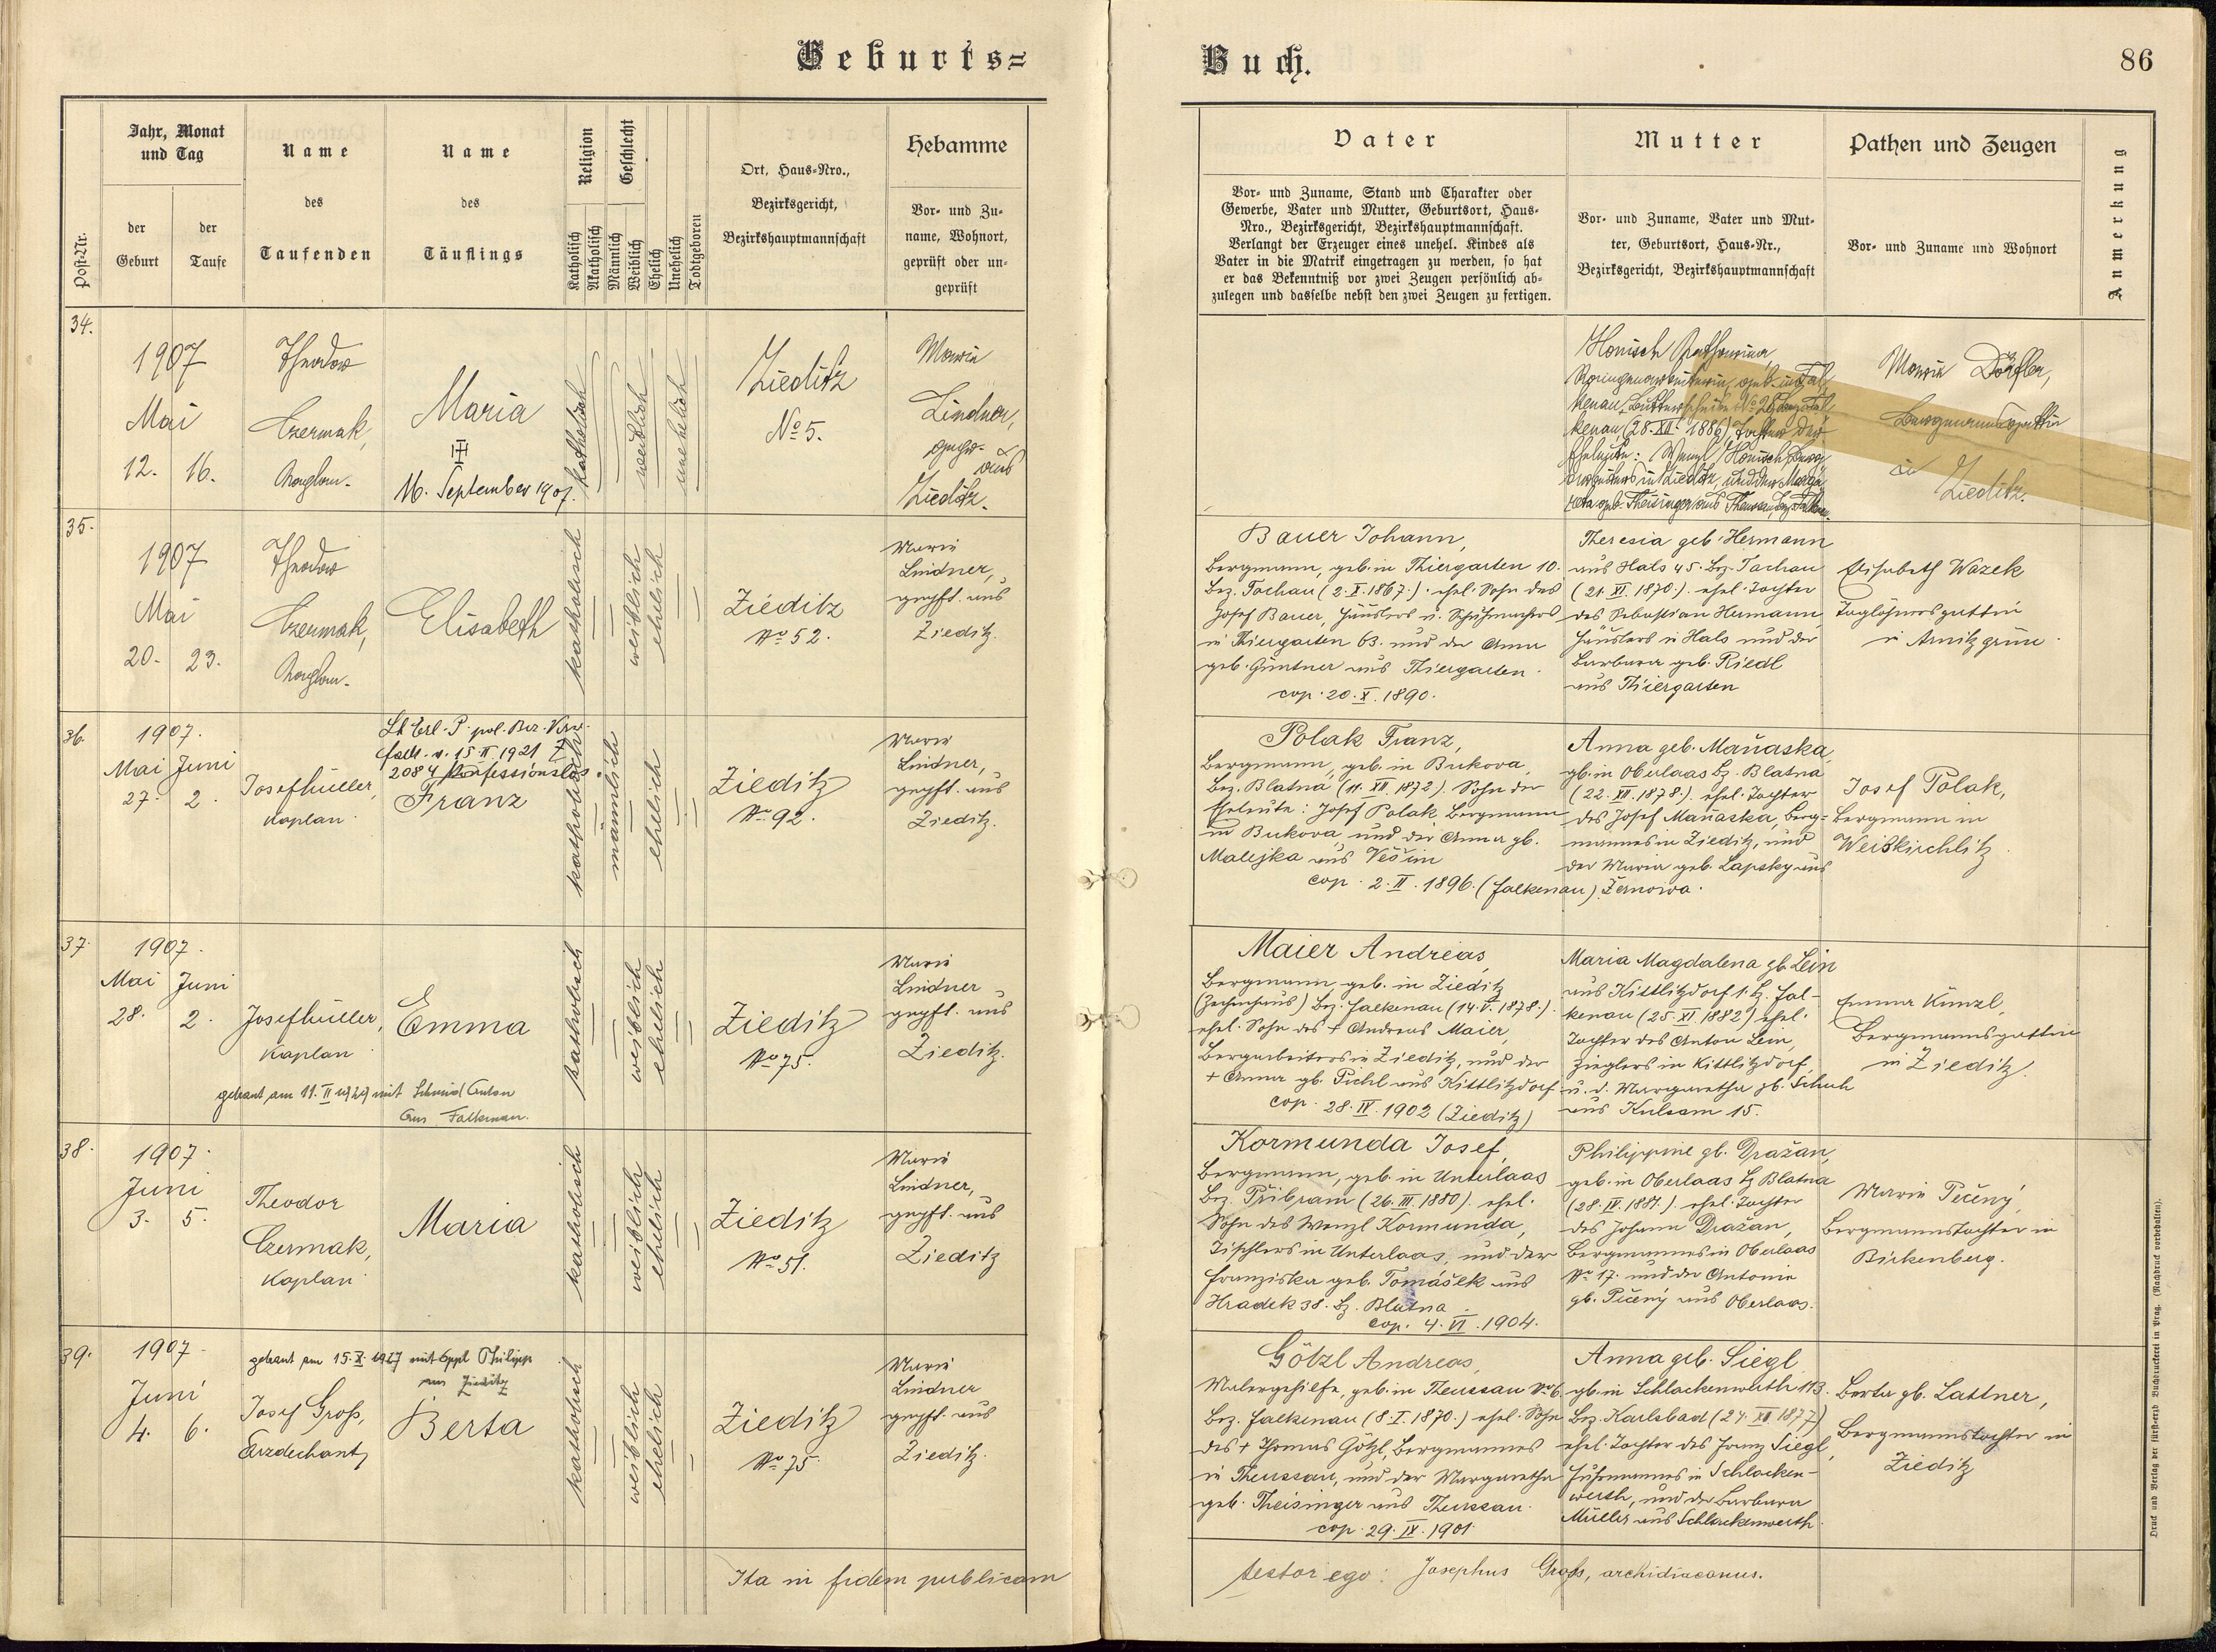 Geburts=
Buch.
86
Post-Nr.
Jahr, Monat
und Tag
der
Geburt
der
Taufe
Name
des
Taufenden
Name
des
Täuflings
Religion
Katholisch
Akatholisch
Geschlecht
Männlich
Weiblich
Ehelich
Unehelich
Todtgeboren
Ort, Haus-Nro.,
Bezirksgericht,
Bezirkshauptmannschaft
Hebamme
Vor- und Zu-
name, Wohnort,
geprüft oder un-
geprüft
Vater
Vor- und Zuname, Stand und Charakter oder
Gewerbe, Vater und Mutter, Geburtsort, Haus-
Nro., Bezirksgericht, Bezirkshauptmannschaft.
Verlangt der Erzeuger eines unehel. Kindes als
Vater in die Matrik eingetragen zu werden, so hat
er das Bekenntniß vor zwei Zeugen persönlich ab-
zulegen und dasselbe nebst den zwei Zeugen zu fertigen.
Mutter
Vor- und Zuname, Vater und Mut-
ter, Geburtsort, Haus-Nr.,
Bezirksgericht, Bezirkshauptmannschaft
Pathen und Zeugen
Vor- und Zuname und Wohnort
Anmerkung
34.
1907
Mai
12. 16.
Theodor
Czermak,
Kaplan.
Maria
16. September 1907.
katholisch
weiblich
unehelich
Zieditz
No 5.
Maria
Lindner,
gepr.
aus
Zieditz.
Honisch Katharina
geb. in Fal-
kenau,
kenau, (28. XII. 1886), Tochter der
Eheleute: Wenzl Honisch, Berg-
arbeiters in Zieditz, und der Marga-
reta geb. Theisinger aus Theussau, Bez. Falkenau.
Maria Dörfler,
Bergmannsgattin
in
Zieditz.
35.
1907
Mai
20. 23.
Theodor
Czermak,
Kaplan.
Elisabeth
katholisch
weiblich
ehelich
Zieditz
No 52.
Marie
Lindner,
geprft. aus
Zieditz.
Bauer Johann,
Bergmann, geb. in Thiergarten 10.
Bez. Tachau (2. X. 1867.). ehel. Sohn des
Josef Bauer, Häuslers u. Schuhmachers
in Thiergarten 63. und der Anna
geb. Güntner aus Thiergarten.
cop. 20. X. 1890.
Theresia geb. Hermann
aus Hals 45. Bez. Tachau
(21. XI. 1870.). ehel. Tochter
des Sebastian Hermann
Häuslers in Hals und der
Barbara geb. Riedl
aus Thiergarten
Elisabeth Wazek
Taglöhnersgattin
in Arnitzgrün.
36.
1907.
Mai Juni
27. 2.
Josef Hüller,
Kaplan.
Lt Erl. P. pol. Bez. Verw.
Falk. v. 15 II 1921 Z
2084 konfessionslos.
Franz
katholisch
männlich
ehelich
Zieditz
No 92.
Marie
Lindner,
geprft. aus
Zieditz.
Polak Franz,
Bergmann, geb. in Bukova,
Bez. Blatna (11. XII. 1872). Sohn der
Eheleute: Josef Polak Bergmann
in Bukova, und der Anna gb.
Malejka aus Vešin
cop. 2. II. 1896. (Falkenau)
Anna geb. Maňaska,
gb. in Oberlaas Bz. Blatna
(22. XII. 1878.). ehel. Tochter
des Josef Maňaska, Berg-
mannes in Zieditz, und
der Maria geb. Lapsky aus
Žernowa.
Josef Polak,
Bergmann in
Weißkirchlitz.
37.
1907.
Mai Juni
28. 2.
Josef Hüller,
Kaplan
Emma
getraut am 11. II 1929 mit Schmid Anton
aus Falkenau.
katholisch
weiblich
ehelich
Zieditz
No 75.
Marie
Lindner
geprft. aus
Zieditz.
Maier Andreas,
Bergmann, geb. in Zieditz
(Zechenhaus) Bez. Falkenau (14. V. 1878.).
ehel. Sohn des + Andreas Maier,
Bergarbeiters in Zieditz, und der
+ Anna gb. Pichl aus Kittlitzdorf
cop. 28. IV. 1902 (Zieditz)
Maria Magdalena gb. Lein
aus Kittlitzdorf 1. Bz. Fal-
kenau (25. XI. 1882) ehel.
Tochter des Anton Lein,
Zieglers in Kittlitzdorf,
u. d. Margaretha gb. Schuh
aus Kulsam 15.
Emma Künzl,
Bergmannsgattin
in Zieditz.
38.
1907.
Juni
3. 5.
Theodor
Czermak,
Kaplan
Maria
katholisch
weiblich
ehelich
Zieditz
No 51.
Marie
Lindner,
geprft. aus
Zieditz
Kormunda Josef,
Bergmann, geb. in Unterlaas
Bez. Přibram (26. III. 1880). ehel.
Sohn des Wenzl Kormunda,
Tischlers in Unterlaas, und der
Franziska geb. Tomášek aus
Hradek 38. Bz. Blatna.
cop. 4. VI. 1904.
Philippine gb. Dražan,
geb. in Oberlaas Bz Blatna
(28. IV. 1881.). ehel. Tochter
des Johann Dražan,
Bergmannes in Oberlaas
No 17. und der Antonie
gb. Pičený aus Oberlaas.
Marie Pečený,
Bergmannstochter in
Birkenberg.
39.
1907
Juni
4. 6.
getraut am 15. X. 1927 mit Eppl Philipp
aus Zieditz
Josef Groß,
Erzdechant
Berta
katholisch
weiblich
ehelich
Zieditz
No 75.
Marie
Lindner
geprft. aus
Zieditz.
Götzl Andreas,
Malergehilfe, geb. in Theussau No 6.
Bez. Falkenau (8. I. 1870.) ehel. Sohn
des + Thomas Götzl, Bergmannes
in Theussau, und der Margaretha
geb. Theisinger aus Theussau.
cop. 29. IX. 1901.
Anna geb. Siegl
gb. in Schlackenwerth 113.
Bez. Karlsbad (24. XII. 1877)
ehel. Tochter des Franz Siegl,
Fuhrmannes in Schlacken-
werth, und der Barbara
Müller aus Schlackenwerth.
Berta gb. Lattner,
Bergmannstochter in
Zieditz
Ita in fidem publicam
testor ego: Josephus Groß, archidiaconus.
Druck und Verlag der fürst-erzb. Buchdruckerei in Prag. (Nachdruck vorbehalten).